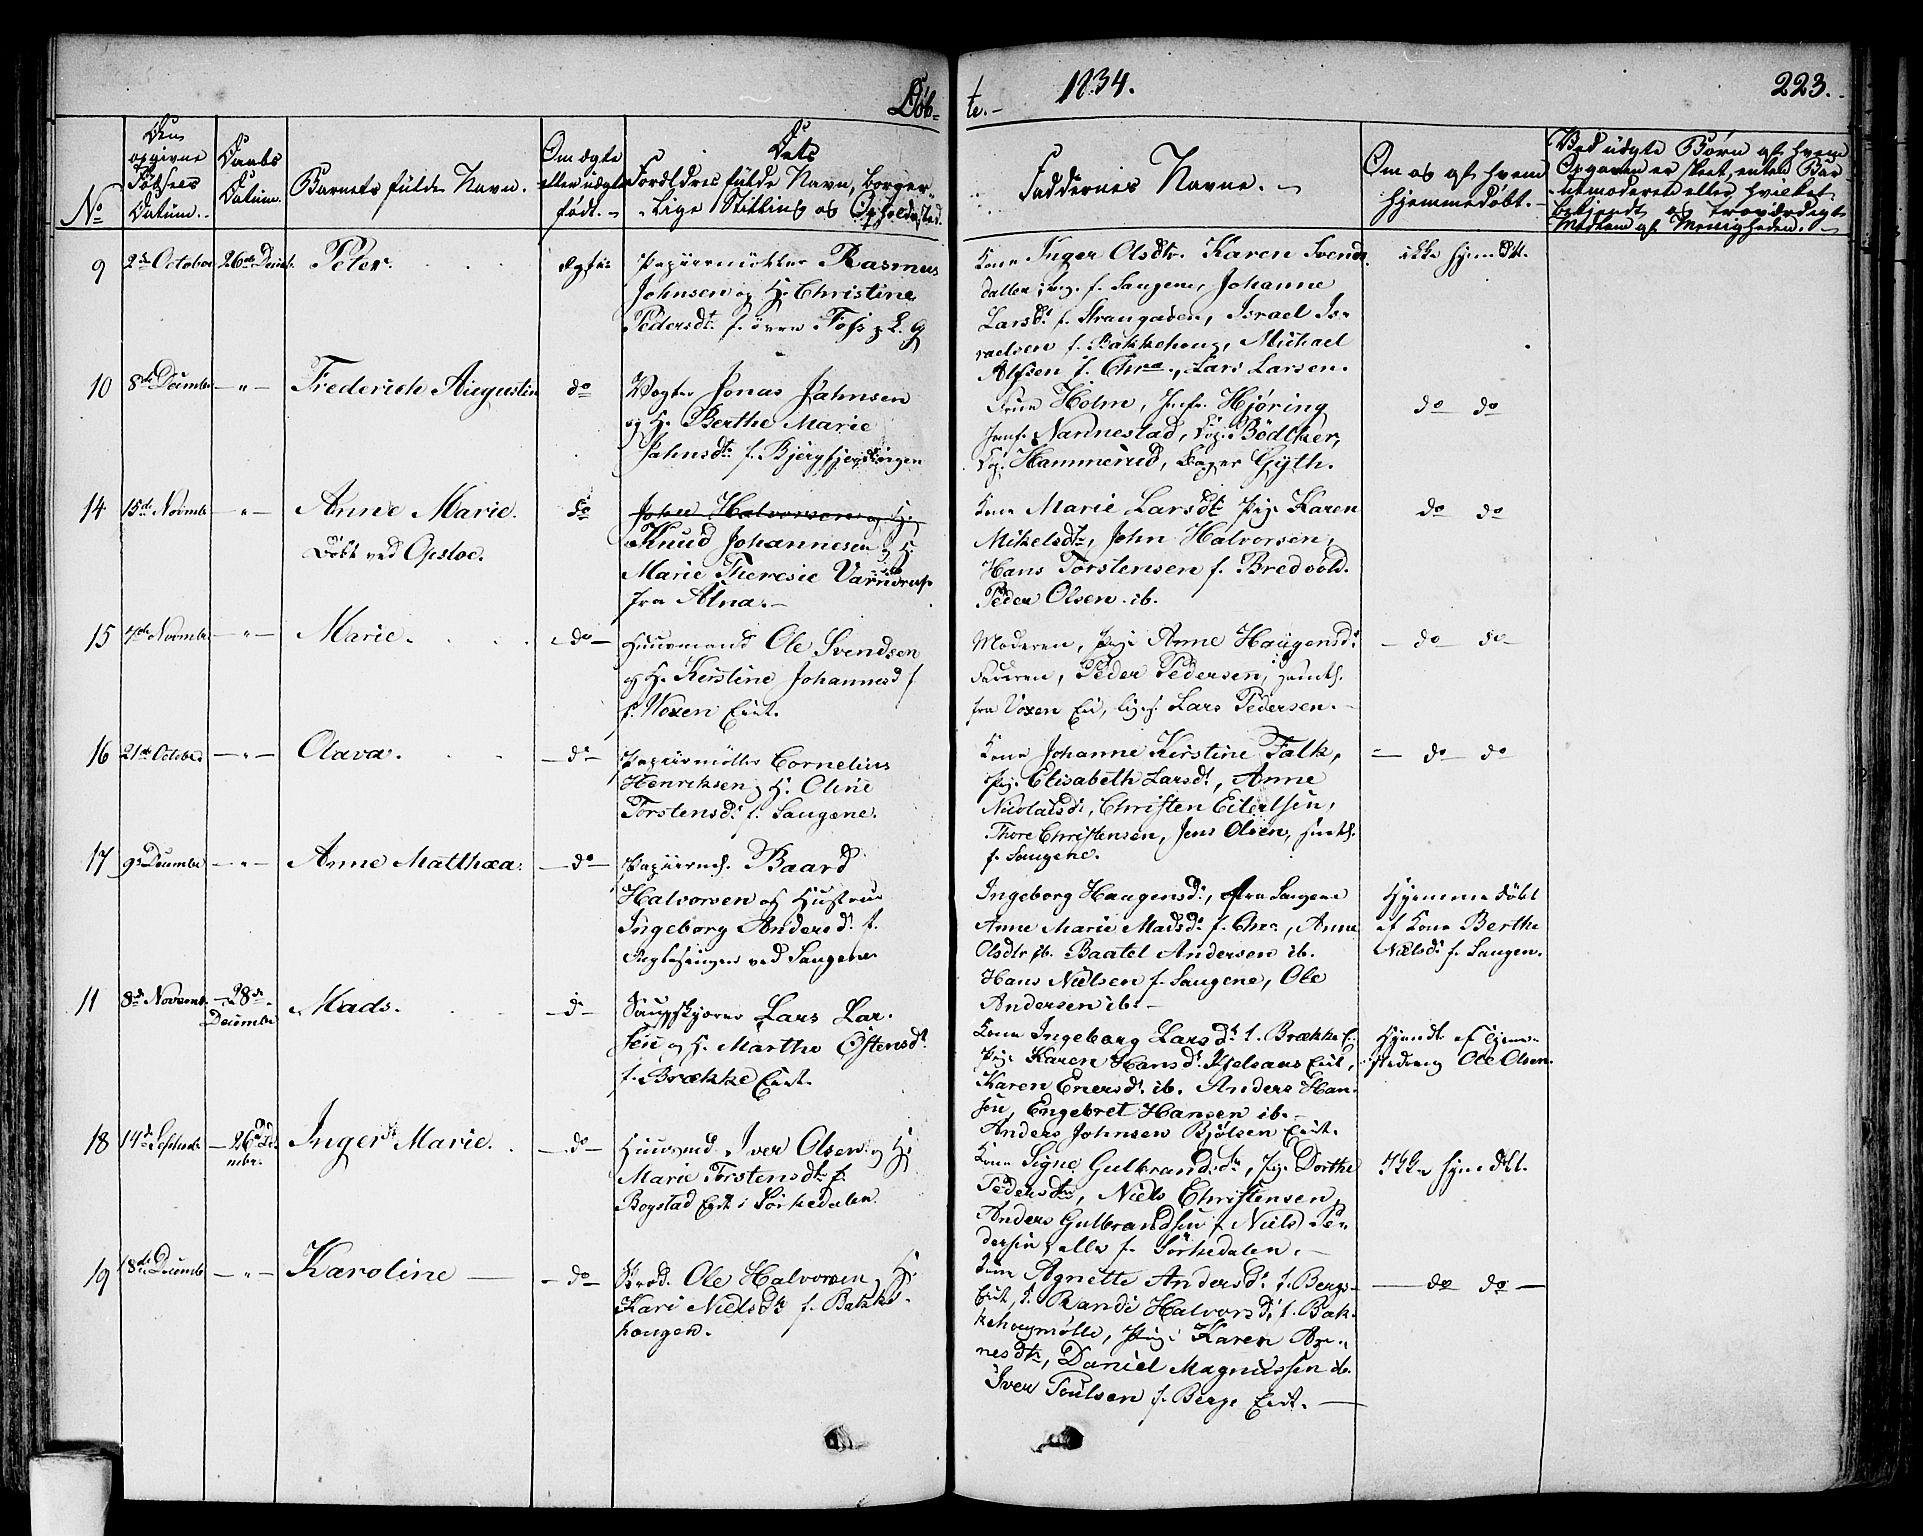 Døb-
te. -
1834.
223.
No
Den
opgivne
Fødsels
Datum.
Daabs
Datum.
Barnets fulde Navn.
Om ægte
eller uægte
født.
Dets
Forældres fulde Navn, borger-
lige Stilling og Opholdssted.
Faddernes Navne.
Om og af hvem
hjemmedøbt.
Ved uægte Børn af hvem
Opgaven er skeet, enten Bar-
nemoderen eller hvilket
bekjendt og troværdigt
Medlem af Menigheden.
9
October
26de
Peter.
ægte
Papiirmøller Rasmus
Johnsen og H. Christine
Pedersdt. f. øvre Foss
Kone Inger Olsdtr. Karen Svends
f. Saugene, Johanne
Larsdt. f. Israel Is-
raelsen f. Bakkehaug, Michael
Alfsen f. Chra., Lars Larsen.
ikke hjemdbt.
10
8de Decembr
- " -
Frederich Augustin
do
Vogter Jonas Jahnsen
og H. Berthe Marie
Jahnsdt. f.
Frue Holm, Jmfr. Hjøring
Jmf. Nannestad, Bødtker,
Hammerud, Gyth.
do do
14
15de Novembr
- " -
Anne Marie.
Døbt ved Opsloe.
do
John Halvorsen og H.
Knud Johannesen og H.
Marie Theresie
fra Alna. -
Kone Marie Larsdt. Pige Karen
Mikelsdtr, John Halvorsen,
Hans Torstensen f. Bredvold.
Peder Olsen. ib.
do do
15
Novembr
- " -
Marie.
- do -
Huusmand Ole Svendsen
og H. Kirstine Johannesd
f. Voxen Eiet.
Moderen, Pige Anne Haugensdt.
Faderen, Peder Pedersen,
fra Voxen Eie, Lars Pedersen. -
- do do -
16
21de October
- " -
Olava.
- do -
Papiirmøller Cornelius
Henriksen og H. Oline
Torstensdt. f. Saugene.
Kone Johanne Kirstine Falk,
Pige Elisabeth Larsdt., Anne
Nicolaisdt., Christen Eilertsen,
Thore Christensen, Jens Olsen,
f. Saugene.
- do do
17
9de Decembr
- " -
Anne Mathæa.
- do -
Baard
Halvorsen og Hustrue
Ingeborg Andersdt. f.
ved Saugene
Ingeborg Haugensdt., fra Saugene
Anne Marie Madsdt. f. Chra, Anne
Olsdtr ib. Baatel Andersen ib.
Hans Nielsen f. Saugene, Ole
Andersen ib. -
Hjemmedøbt
af Kone Berthe
Nielsdt. f. Saugen.
11
8de Novembr.
- 28de
Decembr
Mads.
- do -
Saugskjører Lars Lar-
sen og H. Marthe Østensdt.
f. Brække Eiet.
Kone Ingeborg Larsdt. f. Brække E.
Pige Karen Hansdt. Eiet,
Karen Enersdt. ib. Anders Han-
sen, Engebret Hansen ib. -
Anders Johnsen Bjølsen Eiet.
Hjemdt. af
Ole Olsen.
18
14de Septembr
- 26de De-
mbr.
Inger Marie.
- do -
Huusmd. Iver Olsen og H.
Marie Torstensdt. f.
Bogstad Eiet i Sørkedalen
Kone Signe Gulbrandsdtr, Pige Dorthe
Pedersdtr, Niels Christensen
Anders Gulbrandsen f. Niels Pe-
dersen, alle f. Sørkedalen. -
Ikke hjemdbt.
19
18de Decembr
- " -
Karoline -
- do -
Ole Halvorsen og H.
Kari Nielsdtr f. Bakke-
haugen.
Kone Agnette Andersdt. f. Bergs-
Eiet, Randi Halvorsdt. f. Bak-
kehaugmølle, Pige Karen Ag-
nesdtr, Daniel Magnussen ib.
Iver Poulsen f. Berge Eiet. -
- do do -